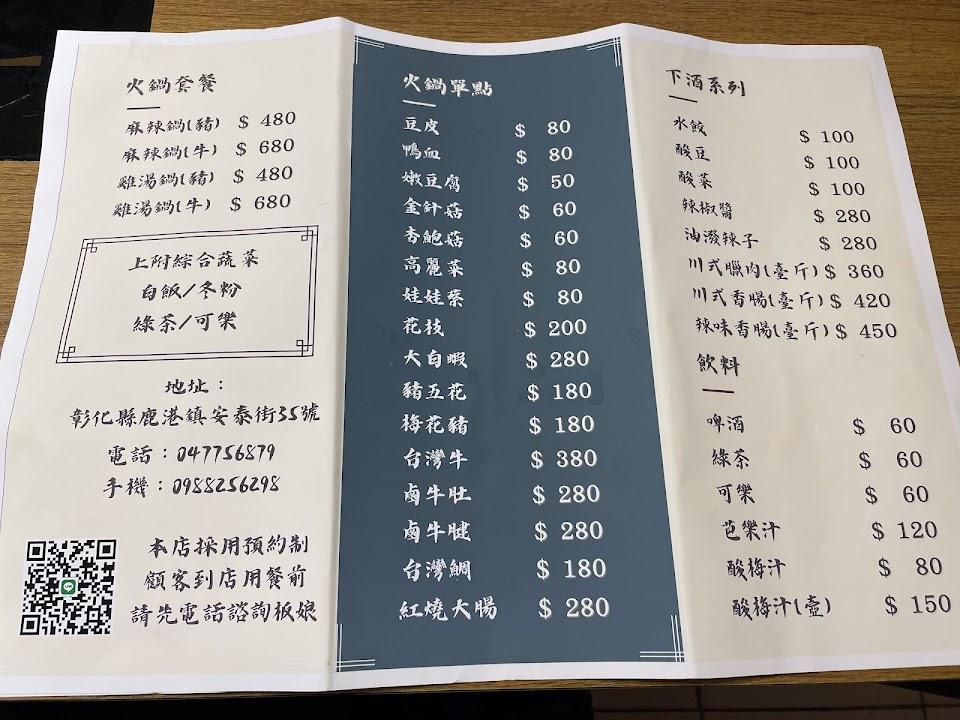 火鍋套餐
麻辣鍋(豬) $ 480
麻辣鍋(牛) $ 680
雞湯鍋(豬) $ 480
雞湯鍋(牛) $ 680
上附綜合蔬菜
白飯/冬粉
綠茶/可樂
地址：
彰化縣鹿港鎮安泰街35號
電話：047756879
手機：0988256298
本店採用預約制
顧客到店用餐前
請先電話諮詢板娘
火鍋單點
豆皮 $ 80
鴨血 $ 80
嫩豆腐 $ 50
金針菇 $ 60
杏鮑菇 $ 60
高麗菜 $ 80
娃娃菜 $ 80
花枝 $ 200
大白蝦 $ 280
豬五花 $ 180
梅花豬 $ 180
台灣牛 $ 380
鹵牛肚 $ 280
鹵牛腱 $ 280
台灣鯛 $ 180
紅燒大腸 $ 280
下酒系列
水餃 $ 100
酸豆 $ 100
酸菜 $ 100
辣椒醬 $ 280
油潑辣子 $ 280
川式臘肉(臺斤) $ 360
川式香腸(臺斤) $ 420
辣味香腸(臺斤) $ 450
飲料
啤酒 $ 60
綠茶 $ 60
可樂 $ 60
芭樂汁 $ 120
酸梅汁 $ 80
酸梅汁(壺) $ 150